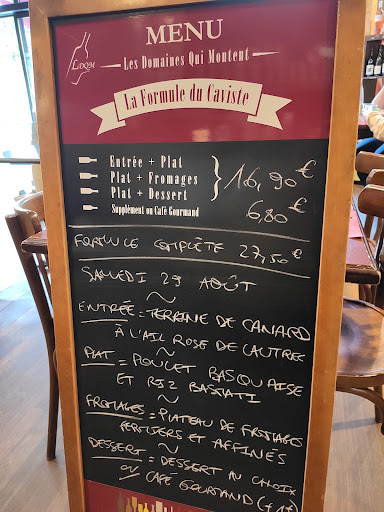 LDQM
MENU
Les Domaines Qui Montent
La Formule du Caviste
Entrée + Plat
Plat + Fromages
Plat + Dessert
16,90€
Supplément ou Café Gourmand
6,80€
FORMULE COMPLÈTE 27,50€
SAMEDI 29 AOÛT
ENTRÉE = TERRINE DE CANARD
À L'AIL ROSE DE LAUTREC
PLAT = POULET BASQUAISE
ET RIZ BASMATI
FROMAGES = PLATEAU DE FROMAGES
FERMIERS ET AFFINÉS
DESSERT = DESSERT AU CHOIX
OU CAFÉ GOURMAND